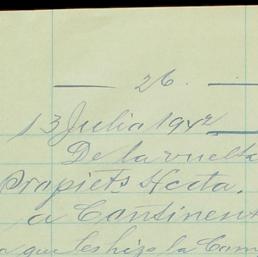 26.
13 Julio 1942
De la vuelta
Propiets Hcta.
a Continen
que les hizo la Com